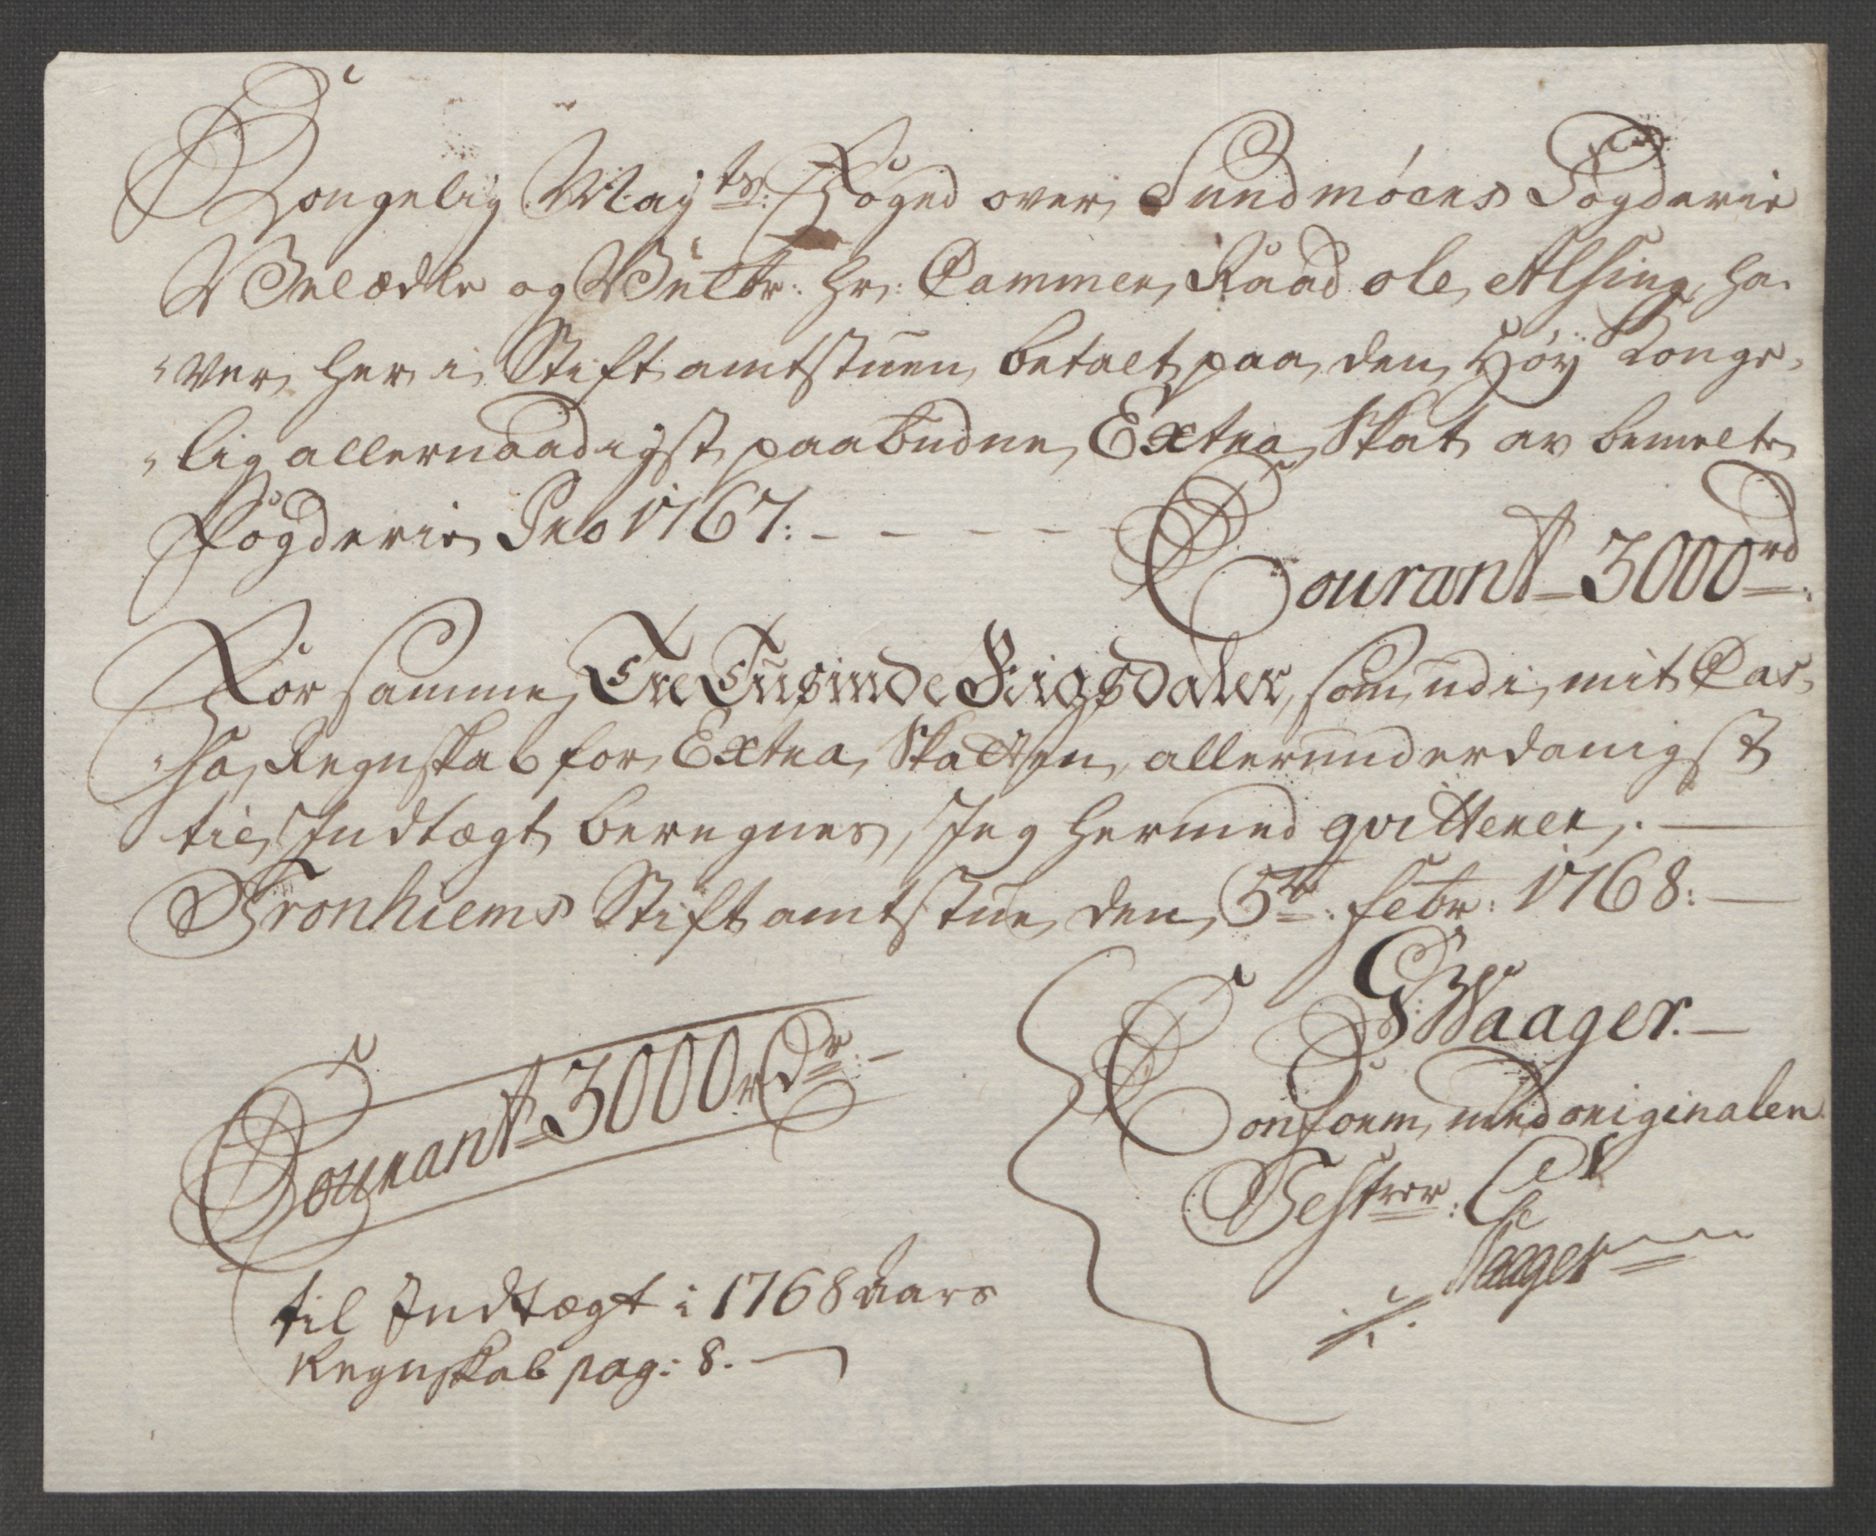 Kongelig May.ts: Foged over Sundmøers Fogderie
Velædle og Velbr: hr: Cammer Raad ole Alsing, ha-
„ver her i Stiftamtstuen betalt paa den Høy Konge-
„lig allernaadigst paabudne Extra Skat av bemelte
Fogderie Pro 1767: - - - -
Courant 3000rd:
For samme Tre Tusinde Rigsdaler, som udi mit Cas-
„sa Regnskab for Extra Skatten allerunderdanigst
til Indtægt beregnes, Jeg hermed qvitterer. —
Tronhiems Stiftamtstue den 5te: Febr: 1768: —
Waager. —
Courant 3000 rdr: —
Conform med originalen
Testerer:
Waager
til Indtægt i 1768 Aars
Regnskab pag: 8. —